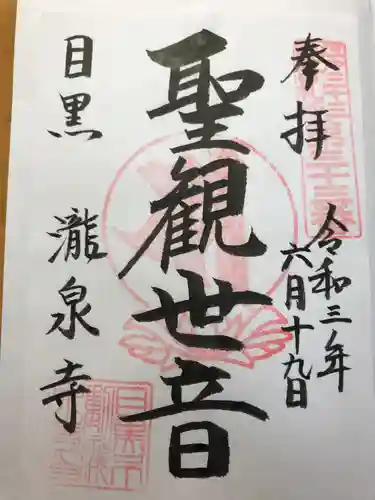 奉拝
令和三年
六月十九日
聖観世音
目黒
瀧泉寺